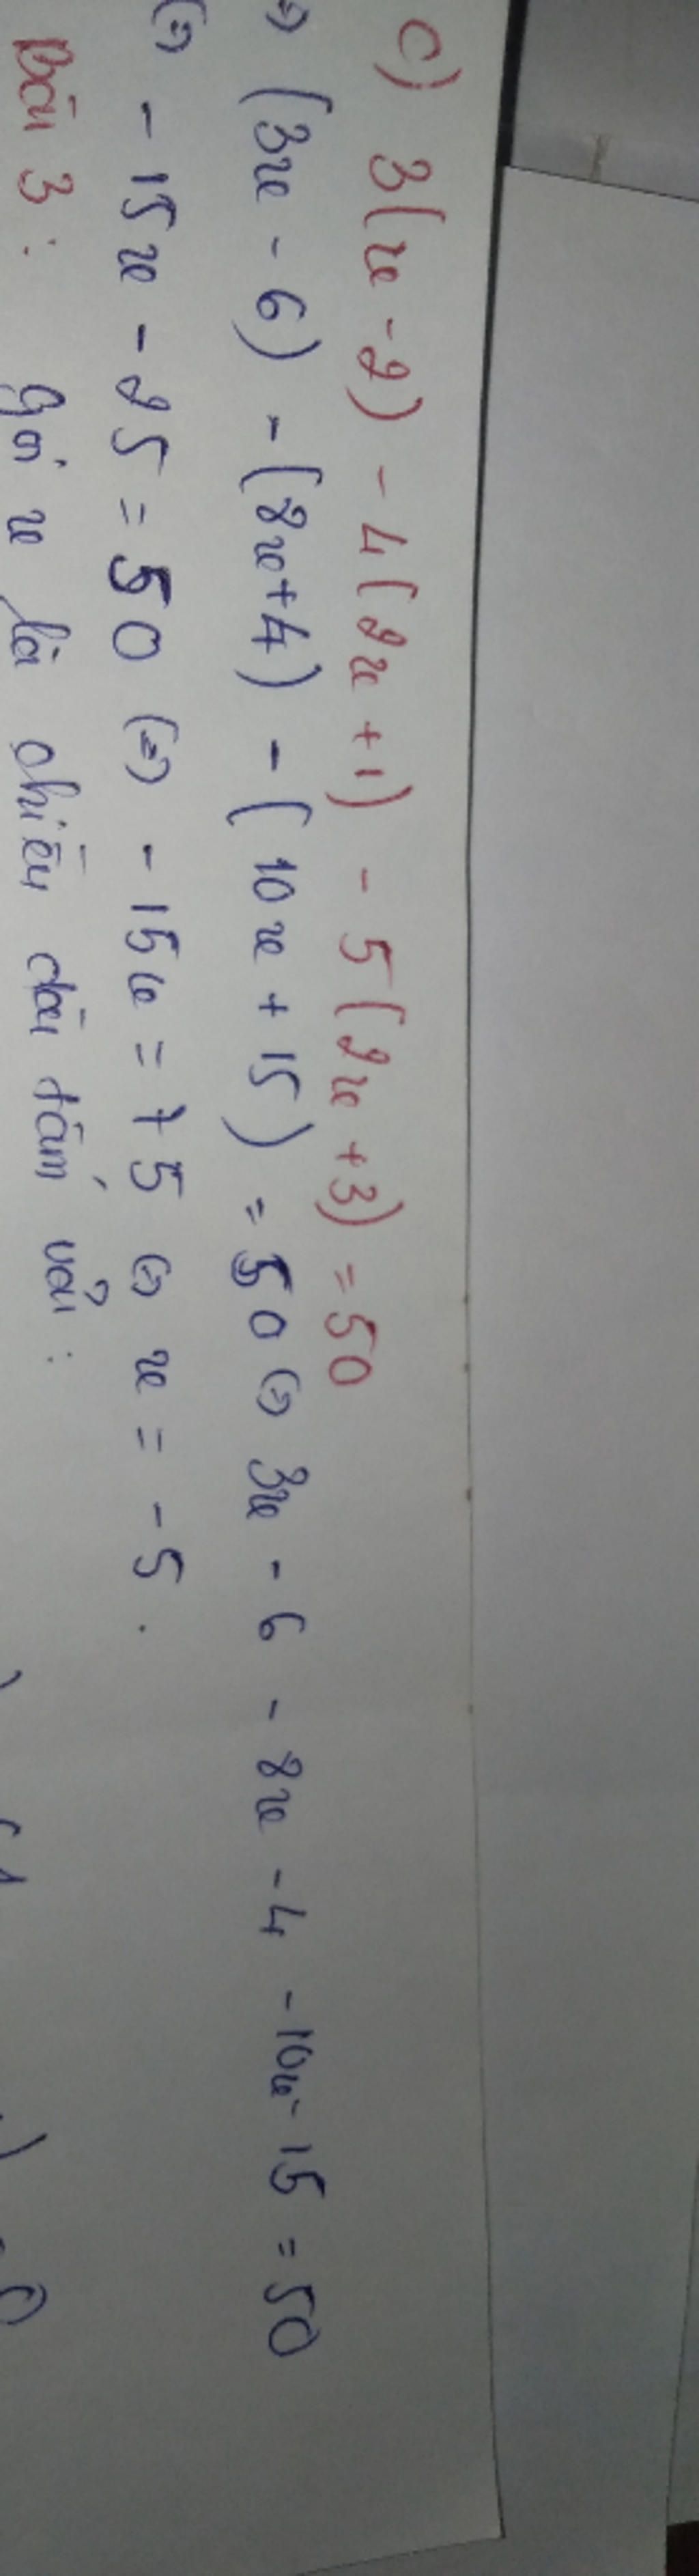 c) 3(x - 2) - 4(2x + 1) - 5(2x + 3) = 50
(3x - 6) - (8x + 4) - (10x + 15) = 50 (=) 3x - 6 - 8x - 4 - 10x - 15 = 50
(=) - 15x - 25 = 50 (=) - 15x = 75 (=) x = - 5 .
Bài 3 : gọi x là chiều dài tấm vải :